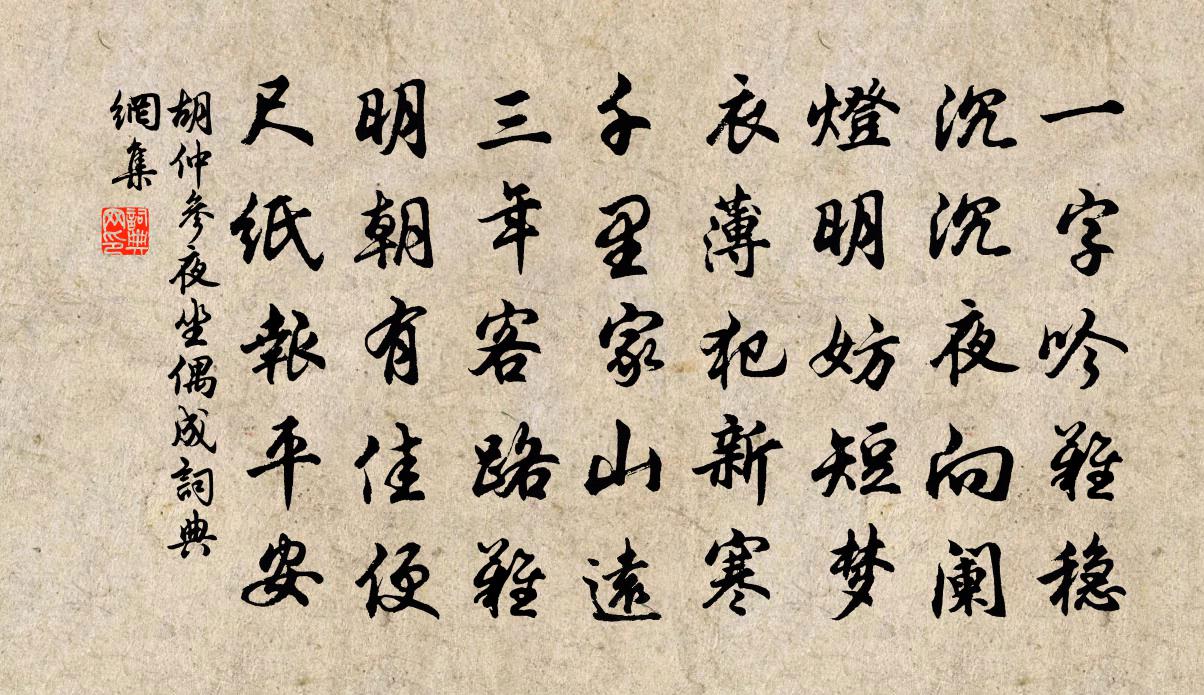 一字吟難穩
沉沉夜向阑
燈明妨短梦
衣薄犯新寒
千里家山遠
三年客路難
明朝有佳便
尺紙報平安
胡仲參夜坐偶成詞典
網集
詞典
网印